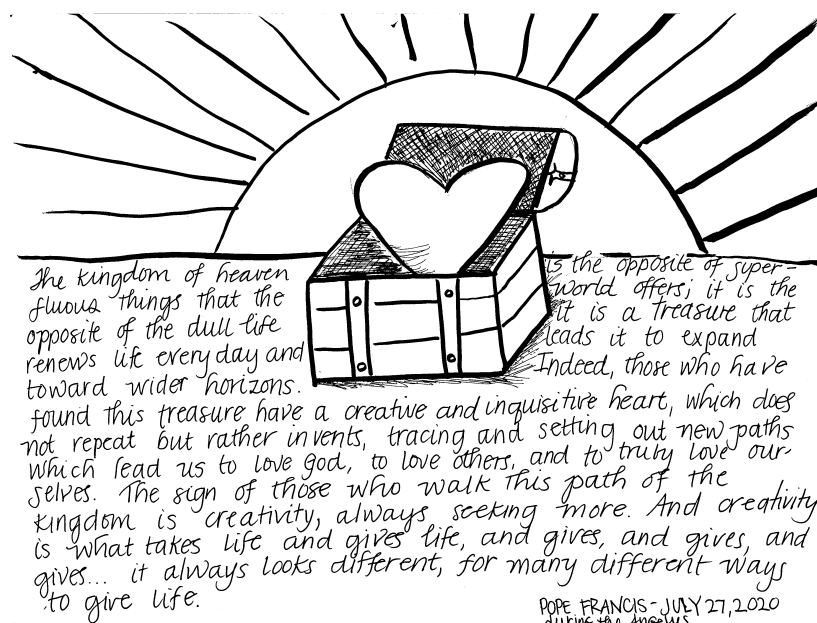 The kingdom of heaven is the opposite of super-
fluous things that the world offers; it is the
opposite of the dull life it is a treasure that
renews life everyday and leads it to expand
toward wider horizons. Indeed, those who have
found this treasure have a creative and inquisitive heart, which does
not repeat but rather invents, tracing and setting out new paths
which lead us to love God, to love others, and to truly love our-
selves. The sign of those who walk this path of the
kingdom is creativity, always seeking more. And creativity
is what takes life and gives life, and gives, and gives, and
gives... it always looks different, for many different ways
to give life.
POPE FRANCIS - JULY 27, 2020
during the Angelus